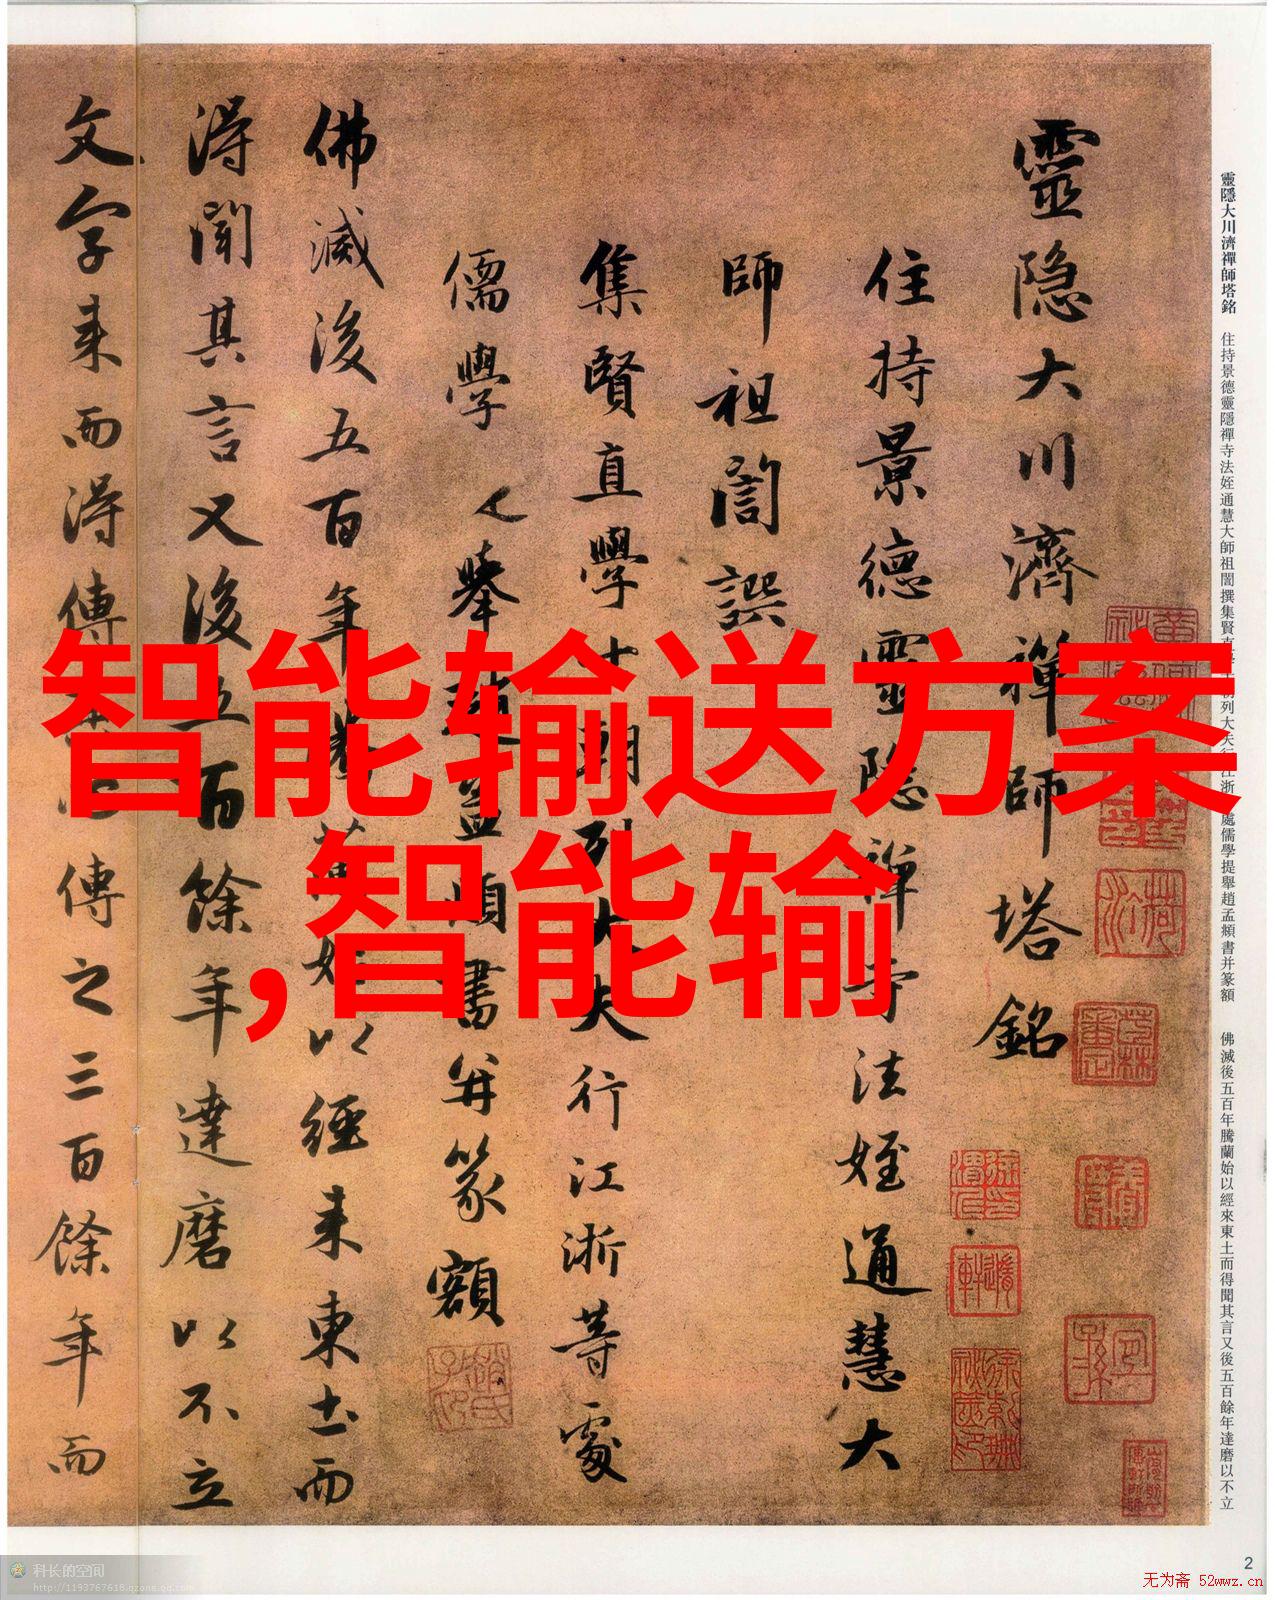 靈隐大川濟禪師塔銘
住持景德靈隐禪寺法姪通慧大
師祖誾譔
集賢直學士朝列大夫行江浙等處
儒學提舉趙孟頫書并篆額
佛滅後五百年騰蘭始以經来東土而
得聞其言又後五百餘年達磨以不立
文字来而得傳之三百餘年而
靈隱大川濟禪師塔銘 住持景德靈隱禪寺法姪通慧大師祖誾撰集賢直列大夫行江浙處儒學提舉趙孟頫書并篆額 佛滅後五百年騰蘭始以經來東土而得聞其言又後五百餘年達磨以不立
智能输送方案
,智能输
2
科长的空间
http://1193767618.qzone.qq.com
无为斋 52wwz.cn